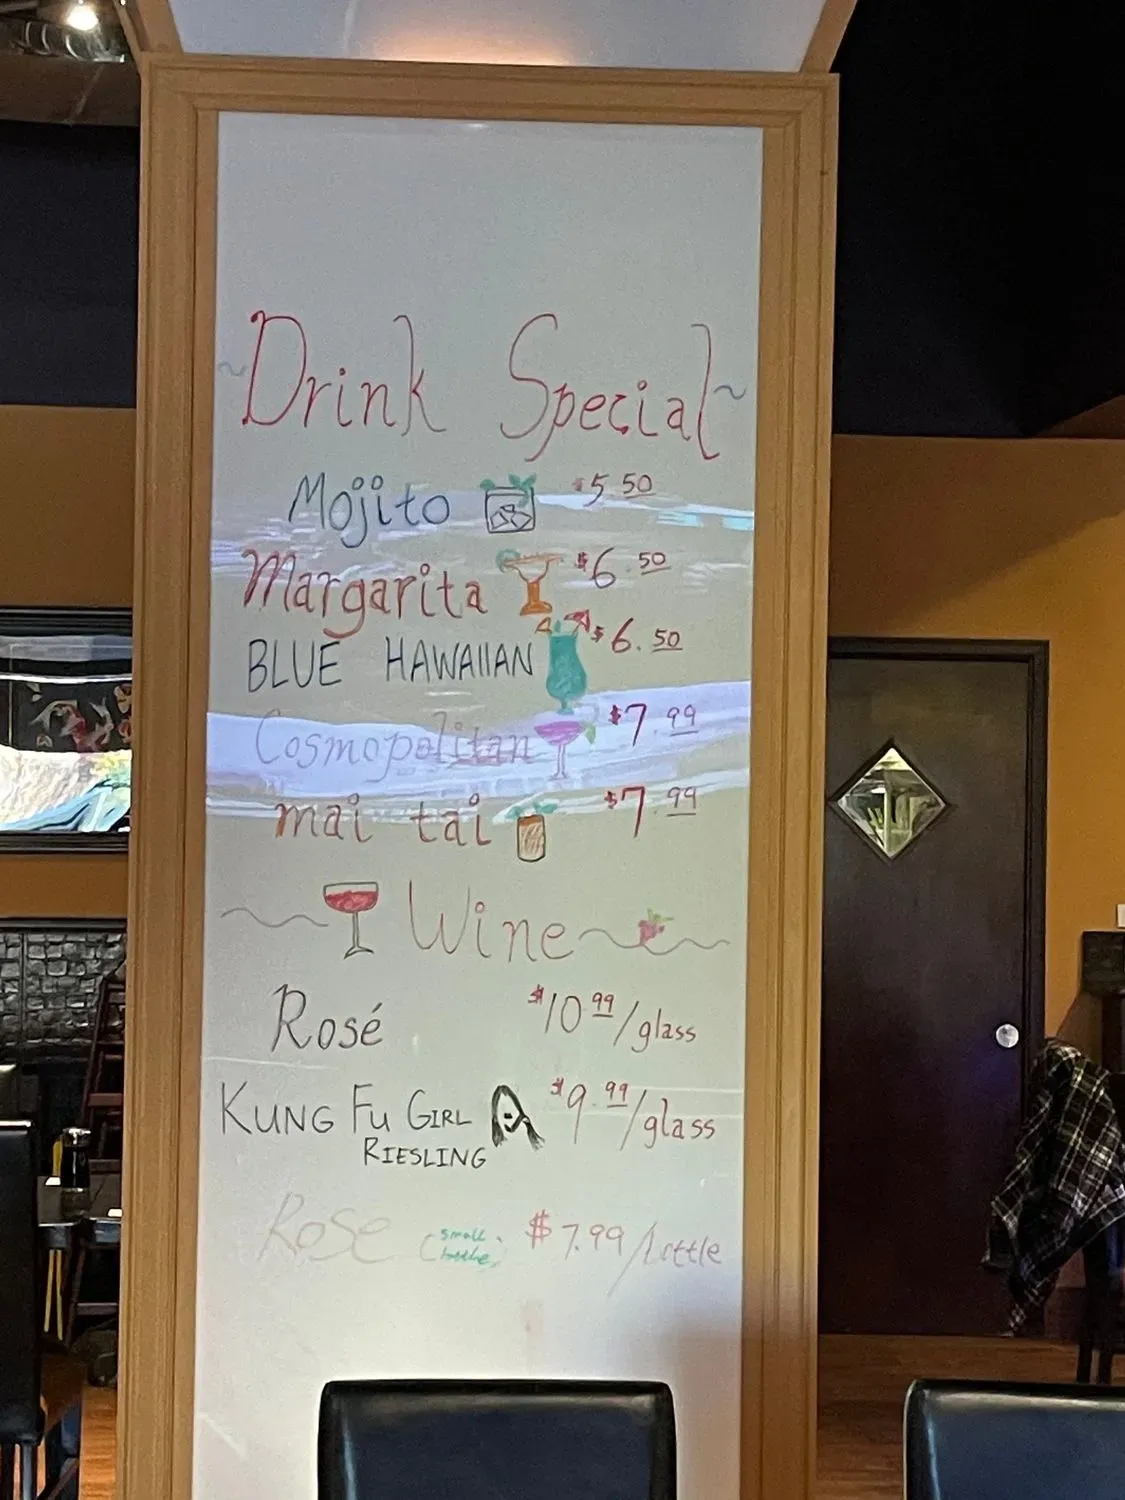 ~Drink Special~
Mojito $5.50
Margarita $6.50
BLUE HAWAIIAN $6.50
Cosmopolitan $7.99
mai tai $7.99
Wine
Rosé $10.99/glass
KUNG FU GIRL $9.99/glass
RIESLING
Rose (small bottle) $7.99/bottle